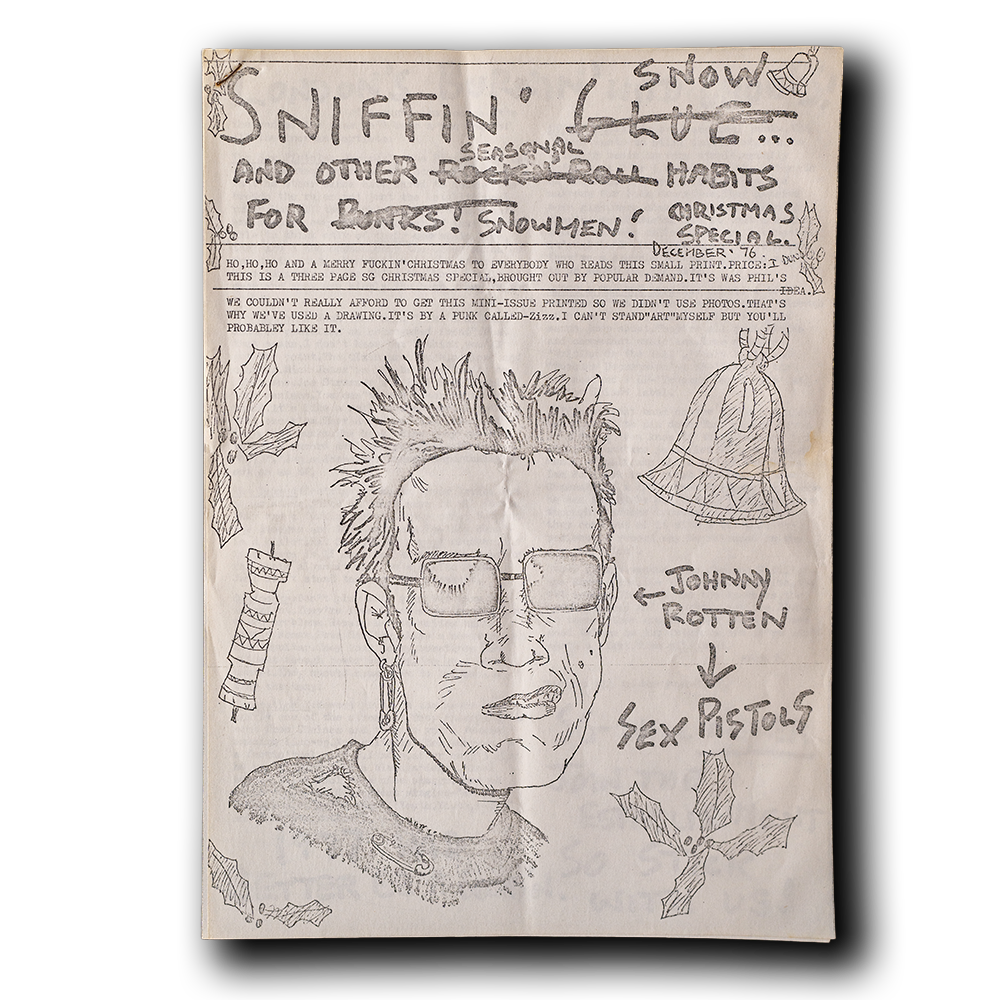 SNOW
SNIFFIN' GLUE...
SEASONAL
AND OTHER ROCK'N'ROLL HABITS
FOR PUNKS! SNOWMEN! CHRISTMAS
SPECIAL.
DECEMBER '76.
HO,HO,HO AND A MERRY FUCKIN'CHRISTMAS TO EVERYBODY WHO READS THIS SMALL PRINT.PRICE:I
THIS IS A THREE PAGE SG CHRISTMAS SPECIAL,BROUGHT OUT BY POPULAR DEMAND.IT'S WAS PHIL'S
IDEA.
WE COULDN'T REALLY AFFORD TO GET THIS MINI-ISSUE PRINTED SO WE DIDN'T USE PHOTOS.THAT'S
WHY WE'VE USED A DRAWING.IT'S BY A PUNK CALLED-Zizz.I CAN'T STAND"ART"MYSELF BUT YOU'LL
PROBABLEY LIKE IT.
←JOHNNY
ROTTEN
↓
SEX PISTOLS